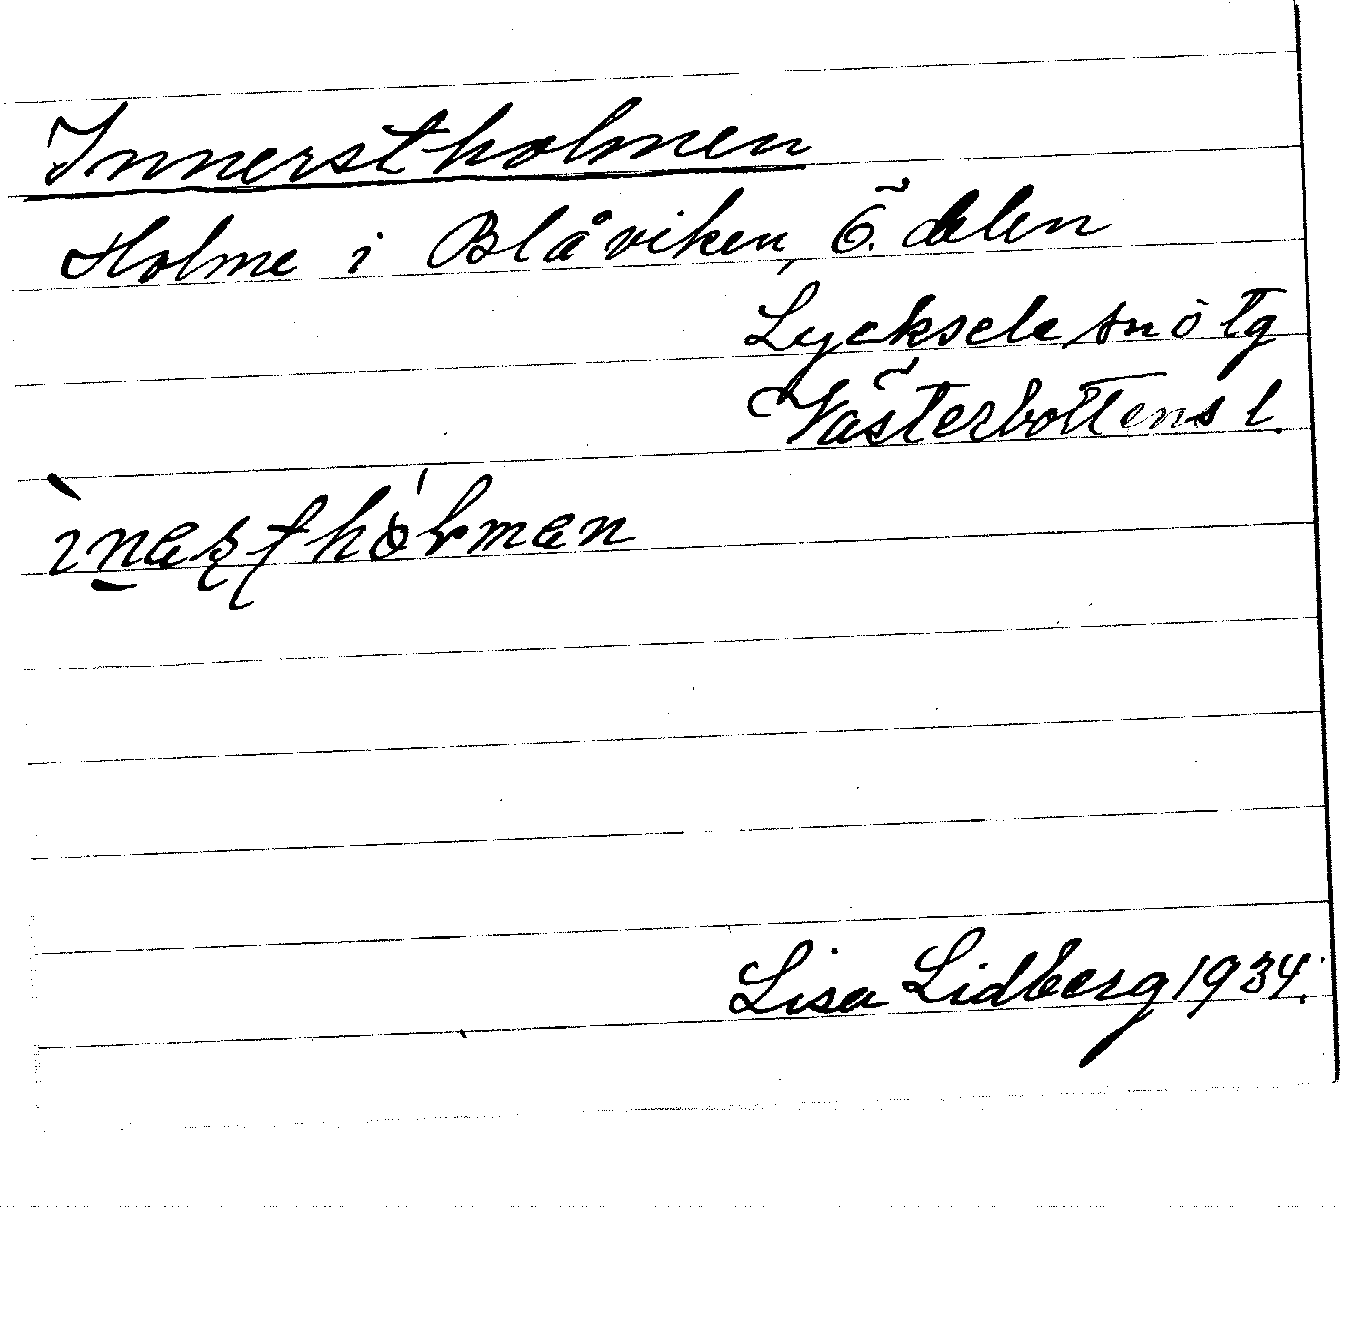 Innerstholmen
Holme i Blåviken, ö. delen
Lycksele sn o tg
Västerbottens l.
Lisa Lidberg 1934.